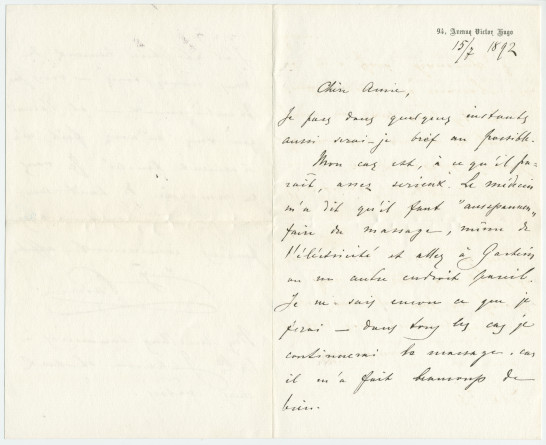 94, Avenue Victor Hugo
15/7 1892
Chère Amie,
Je pars dans quelques instants
aussi serai-je bref au possible.
Mon cas est, à ce qu'il pa-
raît, assez sérieux. Le médecin
m'a dit qu'il faut "ausspannen",
faire du massage, même de
l'électricité et aller à Gastein
ou un autre endroit pareil.
Je ne sais encore ce que je
ferai — dans tous les cas je
continuerai le massage. car
il m'a fait beaucoup de
bien.